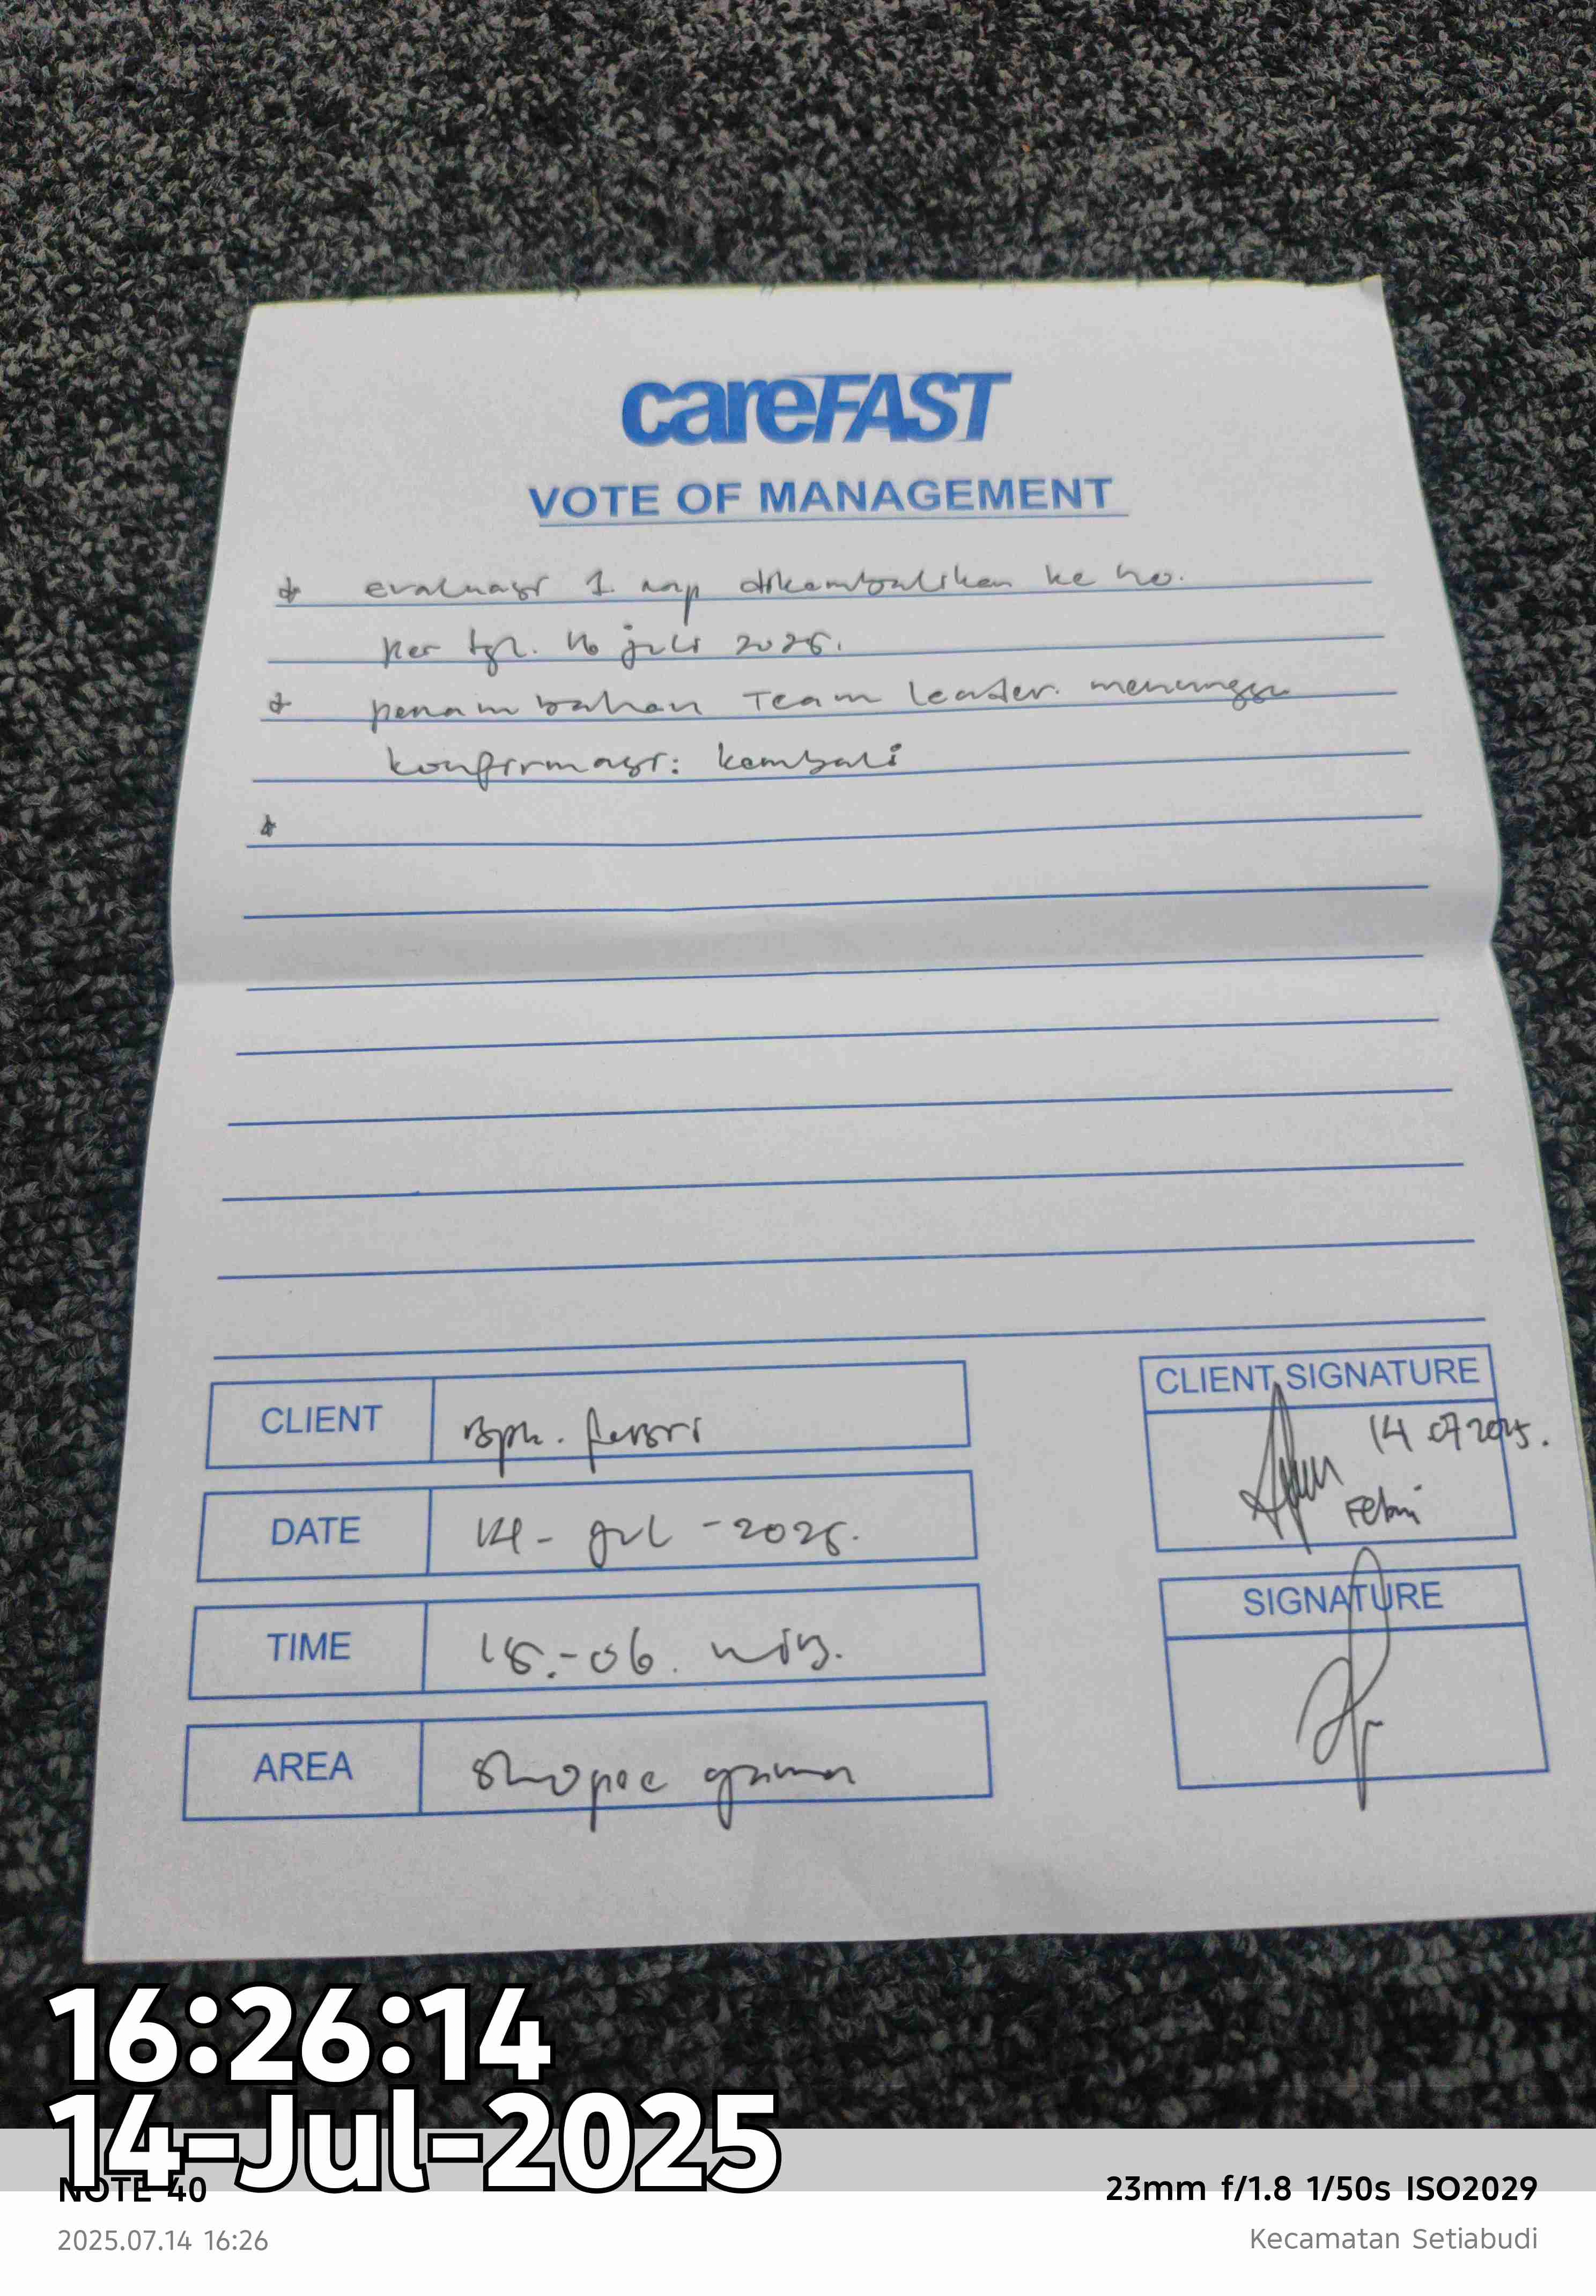 careFAST
VOTE OF MANAGEMENT
* evaluasi 1 mp dikembalikan ke ho.
per tgl. 16 juli 2025.
* penambahan Team leader. menunggu
konfirmasi: kembali
*
CLIENT Bpk. Febri
CLIENT SIGNATURE
14.07.2025.
Febri
DATE 14 - Jul - 2025.
TIME 15.-06. wib.
SIGNATURE
AREA Shopee
16:26:14
14-Jul-2025
NOTE 40
23mm f/1.8 1/50s ISO2029
2025.07.14 16:26
Kecamatan Setiabudi